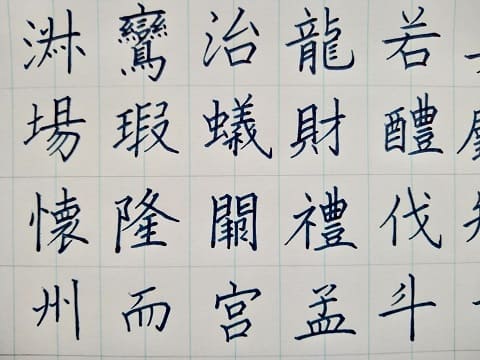 淋鸞治龍若
場瑕蟻財醴
懷隆禮伐
州而宮孟斗